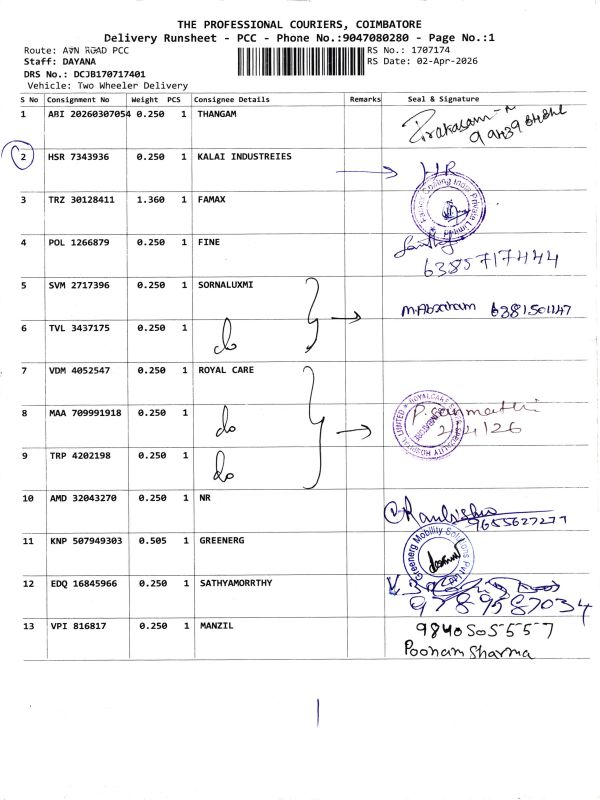 THE PROFESSIONAL COURIERS, COIMBATORE
Delivery Runsheet - PCC - Phone No.:9047080280 - Page No.:1
Route: AVN ROAD PCC
RS No.: 1707174
Staff: DAYANA
RS Date: 02-Apr-2026
DRS No.: DCJB170717401
Vehicle: Two Wheeler Delivery
S No Consignment No Weight PCS Consignee Details Remarks Seal & Signature
1 ABI 20260307054 0.250 1 THANGAM
2 HSR 7343936 0.250 1 KALAI INDUSTREIES HR
3 TRZ 30128411 1.360 1 FAMAX
4 POL 1266879 0.250 1 FINE
6385717444
5 SVM 2717396 0.250 1 SORNALUXMI
6 TVL 3437175 0.250 1 do
7 VDM 4052547 0.250 1 ROYAL CARE
8 MAA 709991918 0.250 1 do
2/4/26
9 TRP 4202198 0.250 1 do
10 AMD 32043270 0.250 1 NR
9655627277
11 KNP 507949303 0.505 1 GREENERG Greenerg Mobility Solutions Pvt Ltd
12 EDQ 16845966 0.250 1 SATHYAMORRTHY
9789587034
13 VPI 816817 0.250 1 MANZIL 9840505557
Poonam Sharma